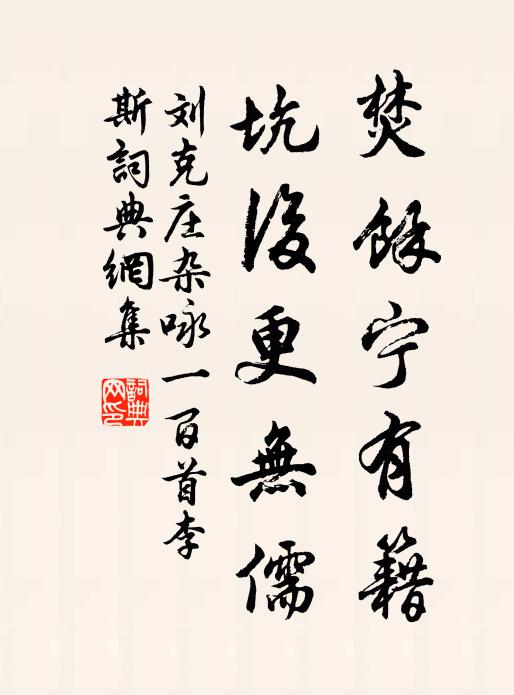 焚餘宁有籍
坑後更無儒
刘克庄杂咏一百首李
斯詞典網集
詞典
网印